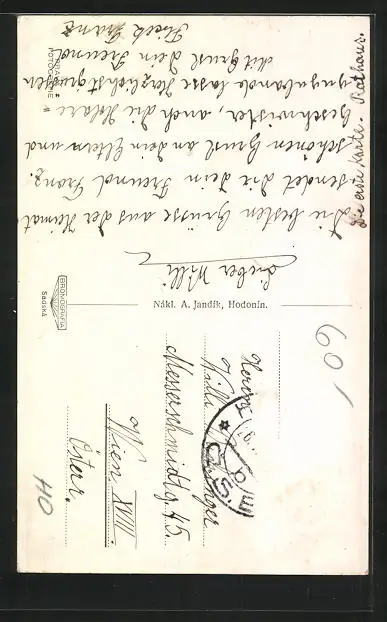 Lieber Willi
Die besten Grüsse aus der Heimat
sendet dir dein Freund Franz.
Schönen Gruß an dein Eltern und
Geschwister, auch die
lasse herzlichst grüssen
Mit Gruß dein Freund
Franz
Die erste Karte. Rathaus.
BROMOGRAFIA
Sadská
Nákl. A. Jandík, Hodonín.
Herrn
Willi
Messerschmidtg. 45.
Wien XVIII
Österr.
601
40